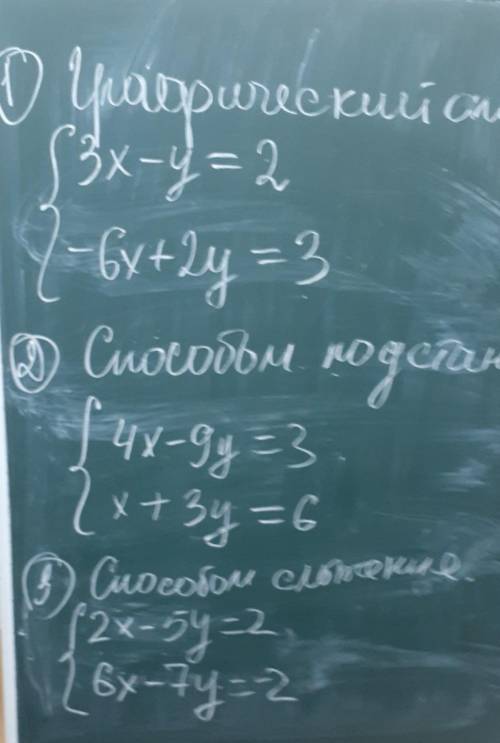 1) Графический
3x-y=2
-6x+2y=3
2) Способом подстан
4x-9y=3
x+3y=6
3) Способом сложение.
2x-5y=2
6x-7y=-2